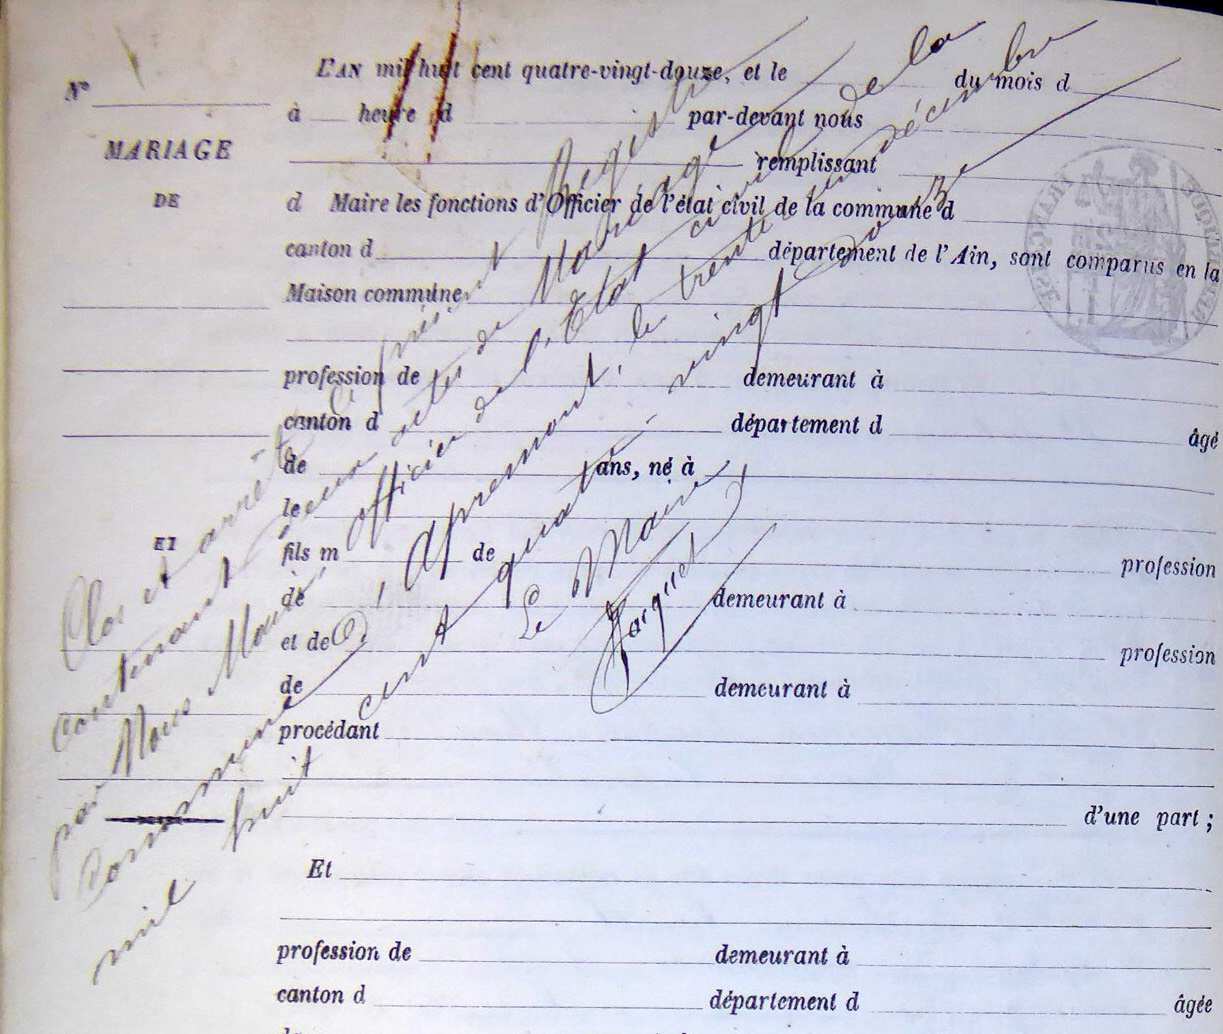 N°
MARIAGE
DE
ET
L'AN mil huit cent quatre-vingt-douze, et le du mois d
à heure d par-devant nous
remplissant
d Maire les fonctions d'Officier de l'état civil de la commune d
canton d département de l'Ain, sont comparus en la
Maison commune
profession de demeurant à
canton d département d âgé
de ans, né à
le
fils m de profession
de demeurant à
et de profession
de demeurant à
procédant
d'une part ;
Et
profession de demeurant à
canton d département d âgée
de
Clos et arrêté le présent Registre
contenant deux actes de Mariage
par Nous Maire, officier de l'Etat civil de la
Commune d'Apremont, le trente un décembre
mil huit cent quatre-vingt douze
Le Maire